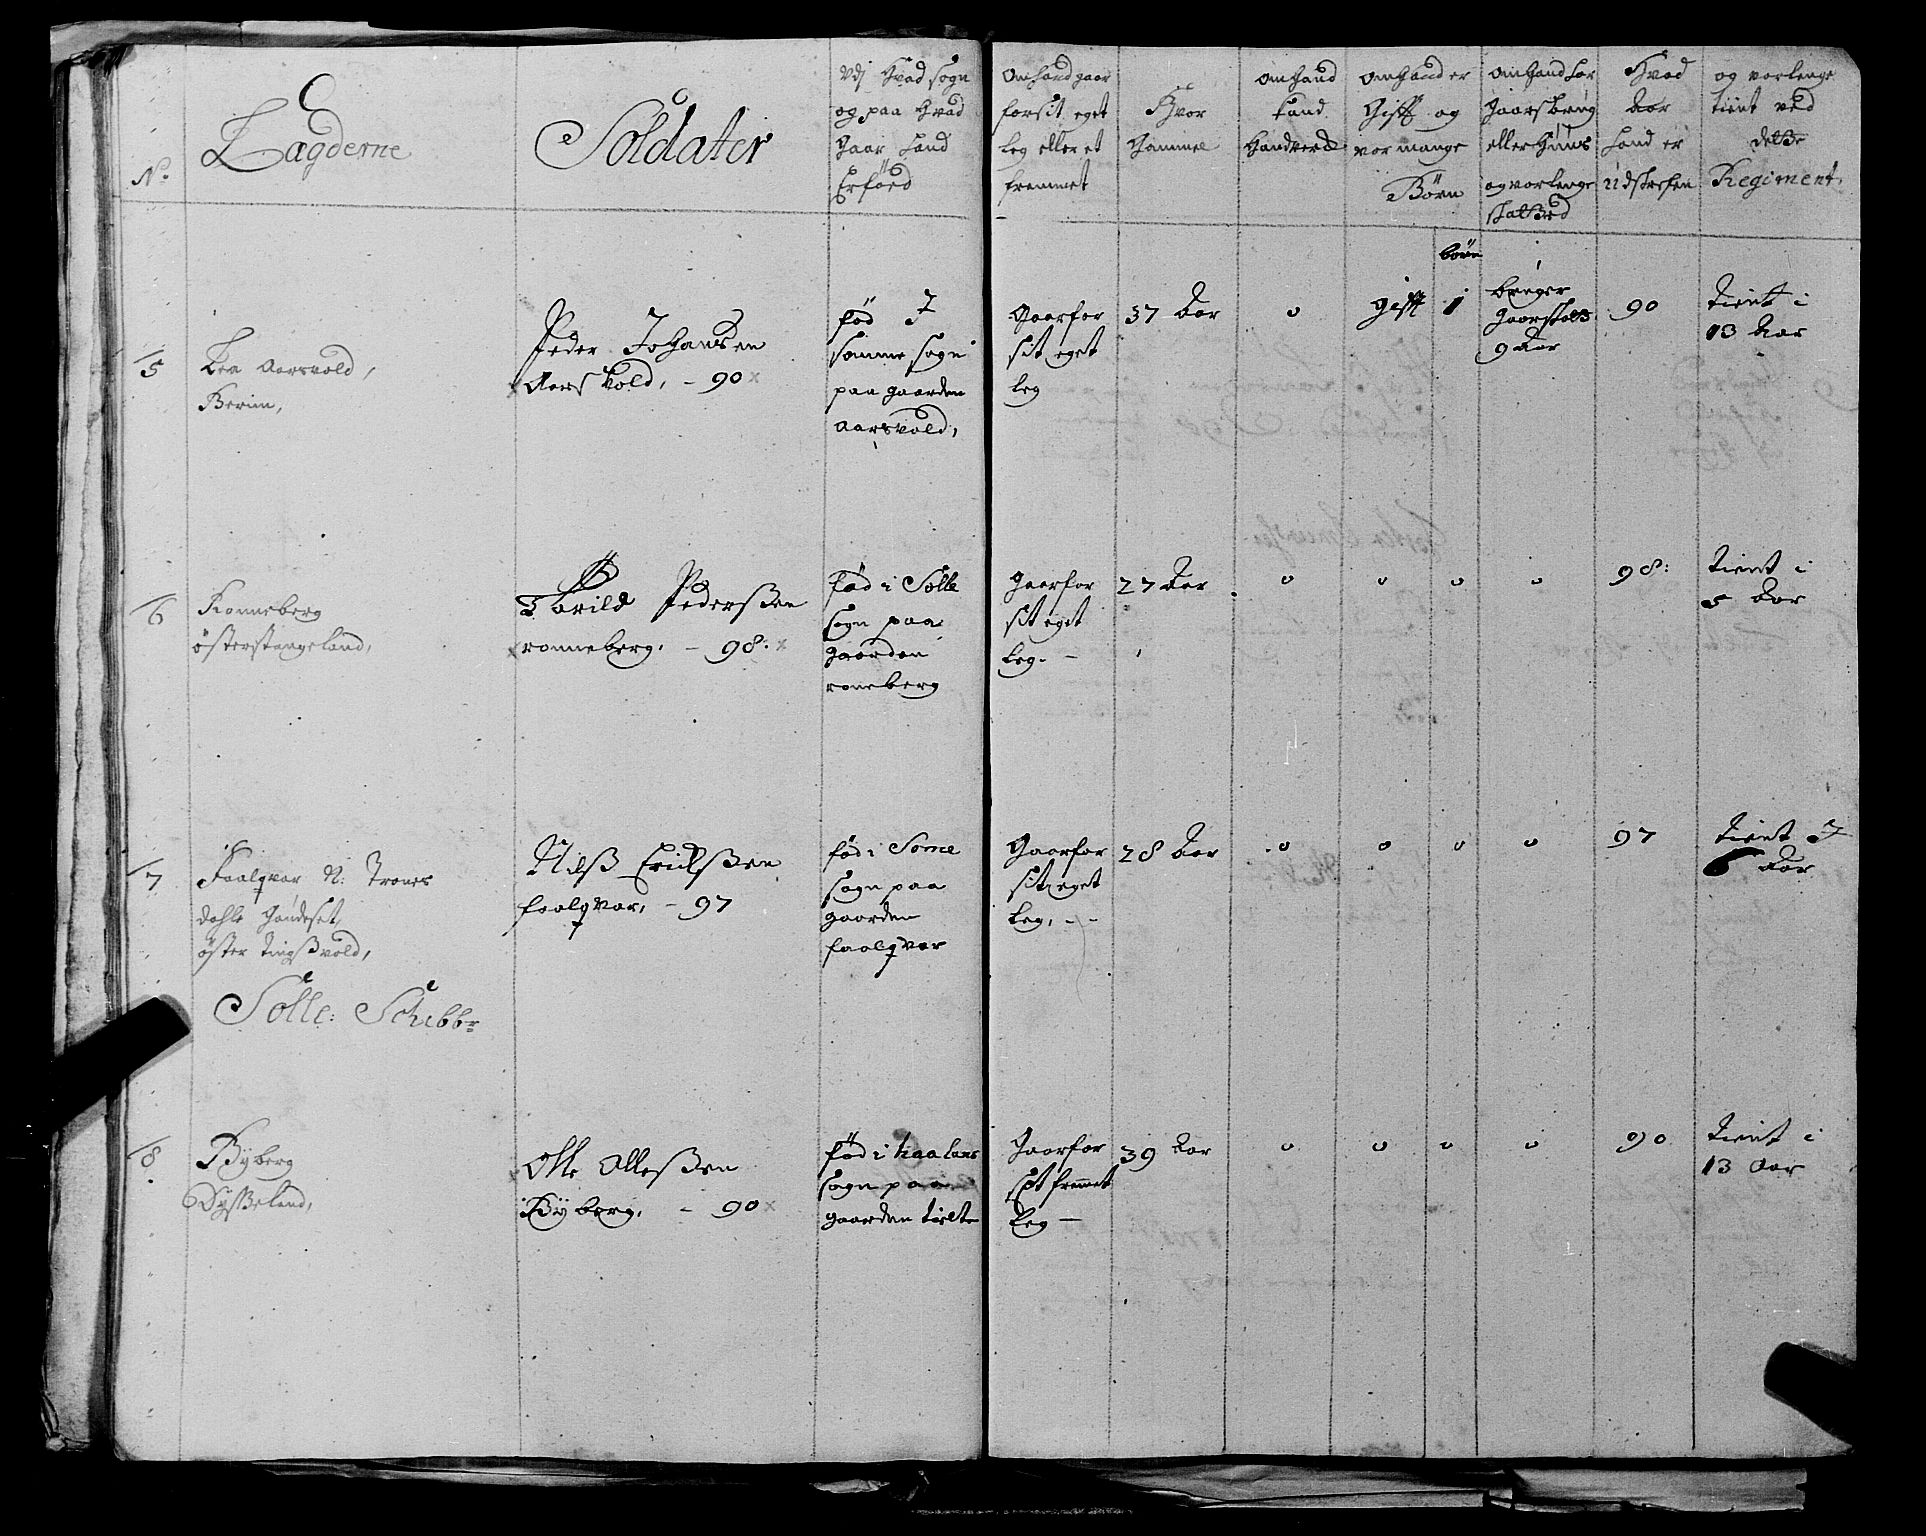 No
Lægderne
Soldater
Udj Hvad sogn
og paa Hvad
Gaar hand
Er föed
Om hand gaar
for sit eget
leg eller et
fremmet
Hvor
Gammel
om Hand
kand
Handverck
om Hand er
Gift og
vor mange
Börn
om Hand har
Gaarsbrug
eller Huus
og vor lenge
Hvad
Aar
hand er
udskrefven
og vor lenge
tient ved
dette
Regiment,
börn
5
Lea Aarsvold,
Berim,
Peder Johansen
Aars Vold, - 90
föd J
samme sogn
paa gaarden
Aarsvold,
Gaar for
sit eget
leg
37 Aar
o
gift
1
bruger
Gaars
9 Aar
90
tient i
13 Aar
6
Ronneberg
österstangeland,
Torild Pederssen
ronneberg, - 98
föd i Solle
sogn paa
gaarden
roneberg
gaar for
sit eget
leg. -
27 Aar
o
o
o
o
98:
tient i
5 Aar
7
Faalqvar N: Tranes
dahle Handeset
öster tingssvold,
Nilss Erickssen
faalqvar, - 97
föd i Some
sogn paa
gaarden
faalqvar
Gaar for
sit eget
leg, - -
28 Aar
o
o
o
o
97
tient J
6 Aar
Solle: Schibbr
8
Byberg
Dysseland,
Olle Ollessen
Byberg, - 90
föd i haalans
sogn paa
gaarden tielte
Gaar for
et fremmet
leg -
39 Aar
o
o
o
o
90
tient i
13 Aar